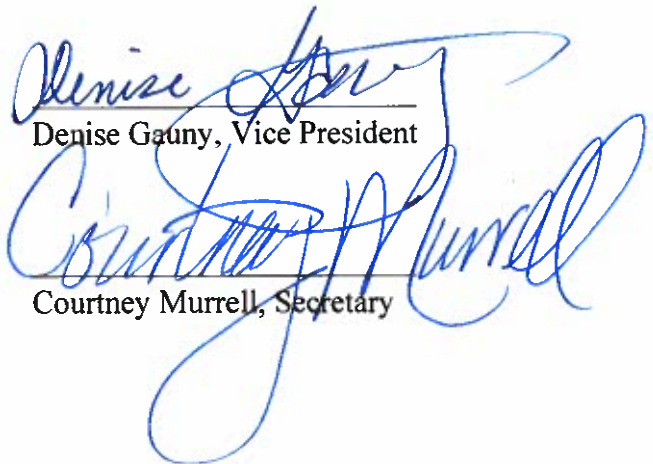 Denise Gauny
Denise Gauny, Vice President
Courtney Murrell
Courtney Murrell, Secretary